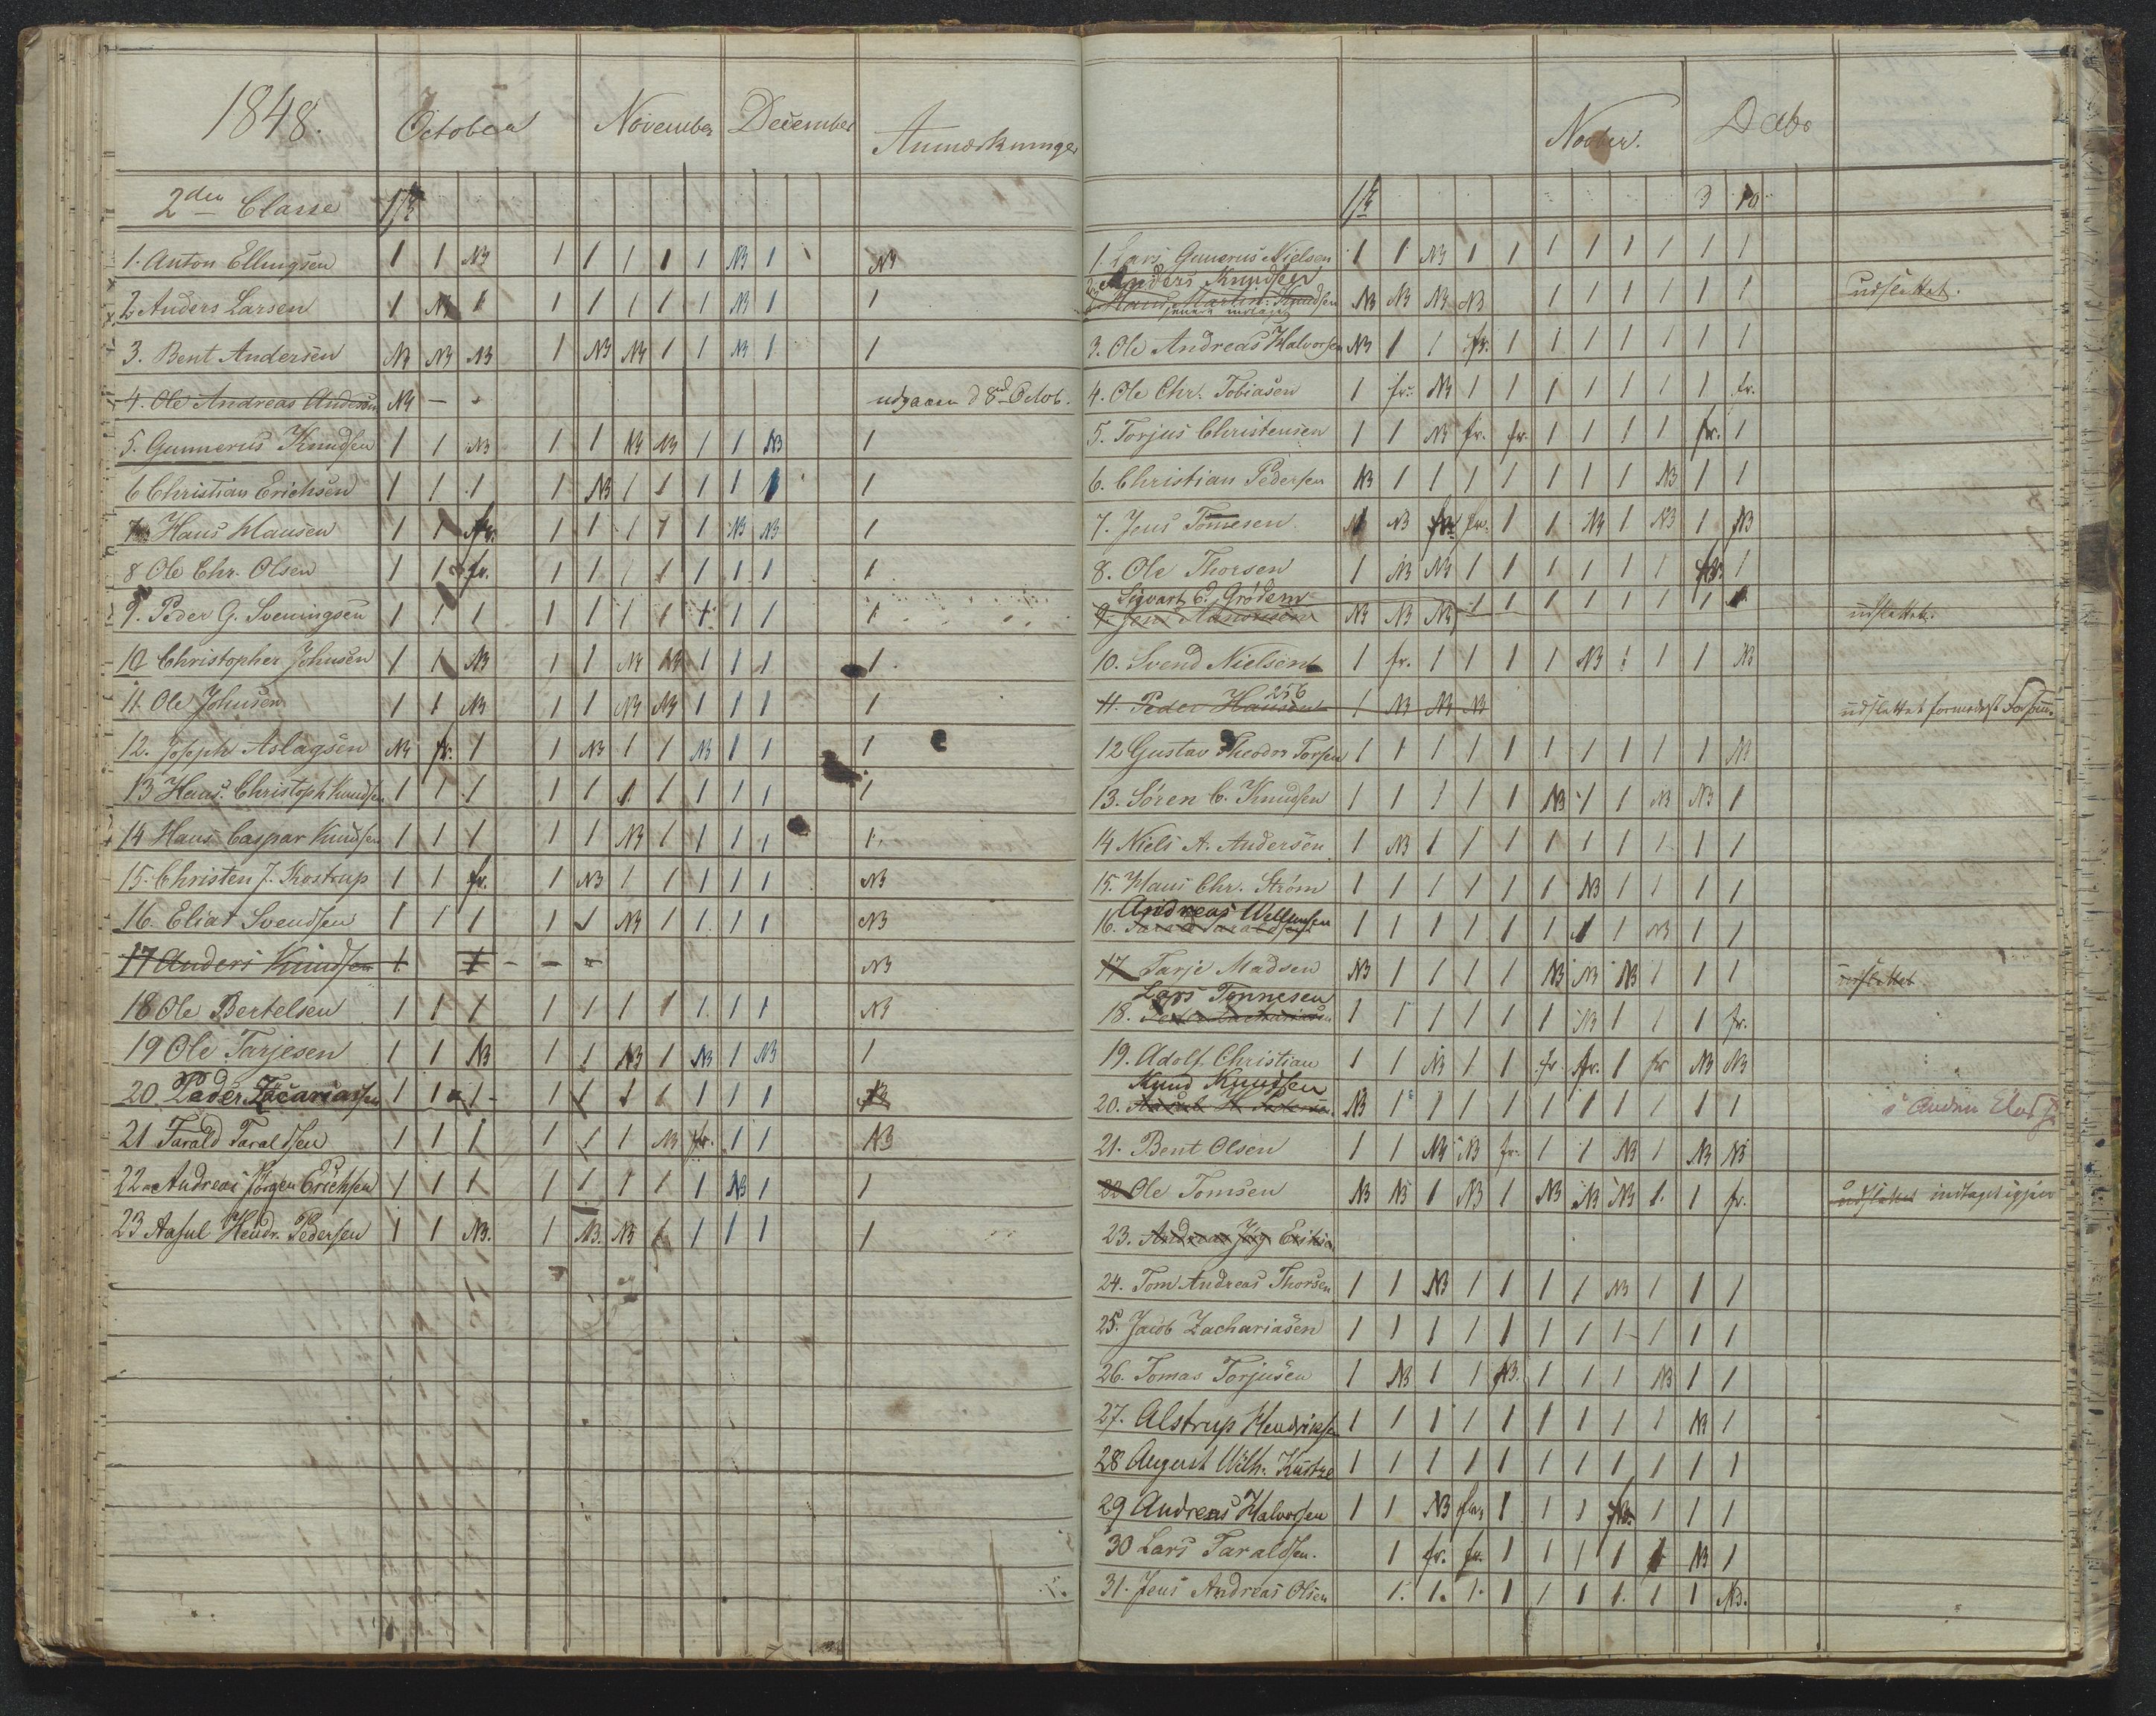 1848. October November December Anmærkninger
2den Classe 1/10
1. Anton Ellingsen 1 1 NB 1 1 1 1 1 NB 1 NB
2 Anders Larsen 1 NB 1 1 1 1 1 1 NB 1 1
3. Bent Andersen NB NB NB 1 NB NB 1 1 NB 1 1
4. Ole Andreas Andersen NB - - udgaaen d 8de Octob.
5. Gunnerus Knudsen 1 1 NB 1 1 NB NB 1 1 NB 1
6 Christian Erichsen 1 1 1 1 NB 1 1 1 1 1 1
7 Hans Hansen 1 1 fr. 1 1 1 1 1 NB NB 1
8 Ole Chr. Olsen 1 1 fr. 1 1 1 1 1 1 1 1
9. Peder G. Sveningsen 1 1 1 1 1 1 1 1 1 1 1
10 Christopher Johnsen 1 1 NB 1 1 NB NB 1 1 1 1
11. Ole Johnsen 1 1 NB 1 1 NB NB 1 1 1 1
12. Joseph Aslagsen NB fr. 1 1 NB 1 1 NB 1 1 1
13 Hans Christoph Knudsen 1 1 1 1 1 1 1 1 1 1 1
14 Hans Caspar Knudsen 1 1 1 1 1 NB 1 1 1 1 1
15. Christen J. Kostrup 1 1 fr. 1 NB 1 1 1 1 1 NB
16. Elias Svendsen 1 1 1 1 1 NB 1 1 1 1 NB
17 Anders Knudsen 1 1 - - - NB
18 Ole Bertelsen 1 1 1 1 1 1 1 1 1 1 NB
19 Ole Tarjesen 1 1 NB 1 1 NB 1 NB 1 NB 1
20 Peder Zacariassen 1 1 1 1 1 1 1 1 1 1 NB
21 Tarald Taraldsen 1 1 1 1 1 1 NB fr. 1 1 NB
22 Andreas Jörgen Erichsen 1 1 1 1 1 1 1 1 NB 1 1
23 Aasul Hendr. Pedersen 1 1 NB. 1 NB. NB 1 1 1 1 1
Novber. Decbr
1/10 3 10
1. Lars Gunerus Nielsen 1 1 NB 1 1 1 1 1 1 1 1
2 Anders Knudsen
Hans Martin Knudsen NB NB NB NB 1 1 1 1 1 1 udslettet.
3. Ole Andreas Halvorsen NB 1 1 fr. 1 1 1 1 1 1 1
4. Ole Chr. Tobiasen 1 fr. NB 1 1 1 1 1 1 1 fr.
5. Torjus Christensen 1 1 NB fr. fr. 1 1 1 1 fr. 1
6. Christian Pedersen NB 1 1 1 1 1 1 1 NB 1 1
7. Jens Tönnesen NB fr. fr. 1 1 NB 1 NB 1 NB
8. Ole Thorsen 1 NB NB 1 1 1 1 1 1 NB 1
Sigvart C. Grödem
9. Jens NB NB NB 1 1 1 1 1 1 1 udslettet.
10. Svend Nielsen 1 fr. 1 1 1 1 NB 1 1 1 NB
256
11. Peder Hansen 1 NB NB NB udslettet formedelst Forsøm.
12 Gustav Theodor Torsen 1 1 1 1 1 1 1 1 1 1 NB
13. Sören C. Knudsen 1 1 1 1 1 NB 1 1 NB NB 1
14 Niels A. Andersen 1 NB 1 1 1 1 1 1 1 1 1
15. Hans Chr. Ström 1 1 1 1 1 1 NB 1 1 1 1
Andreas Wellumsen
16. Tarald Taraldsen 1 1 1 1 1 1 1 1 NB 1 1
17 Tarje Madsen NB 1 1 1 1 NB NB NB 1 1 1 udslettet
Lars Tönnesen
18. Peder Zachariasen 1 1 1 1 1 1 NB 1 1 1 fr.
19. Adolf Christian 1 1 NB 1 1 fr. fr. 1 fr NB NB
Knud Knudsen
20. Aasul H. Pedersen NB 1 1 1 1 1 1 1 1 1 1 i Anden
21. Bent Olsen 1 1 NB NB fr. 1 1 NB 1 NB NB
22 Ole Tomsen NB NB 1 NB 1 NB NB NB 1 1 fr. udslettet indtaget igjen
23. Andreas Jörg. Eriksen
24. Tom Andreas Thorsen 1 1 NB 1 1 1 1 NB 1 1 1
25. Jacob Zachariasen 1 1 1 1 1 1 1 1 1 1 1
26. Tomas Torjusen 1 NB 1 1 NB. 1 1 1 NB 1 1
27. Alstrup Hendriksen 1 1 1 1 1 1 1 1 1 NB 1
28 August Wilh. 1 1 1 1 1 1 1 1 1 1 1
29 Andreas Halvorsen 1 1 NB fr. 1 1 1 fr. 1 1 1
30 Lars Taraldsen. 1 fr. fr. 1 1 1 1 NB 1
31. Jens Andreas Olsen 1. 1. 1. 1 1 1 1. 1 1 NB.